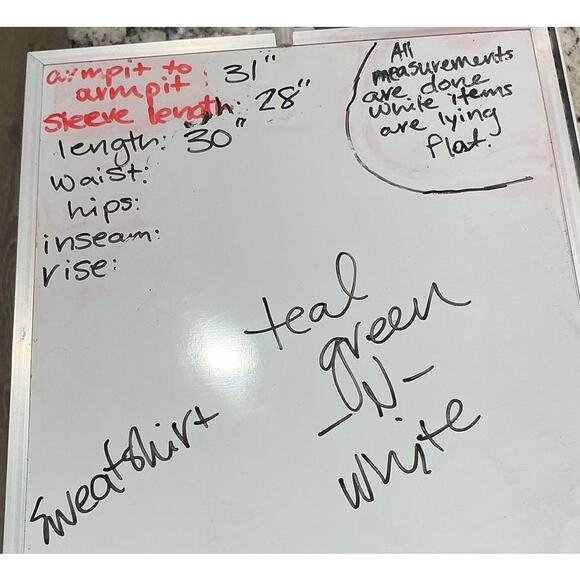 armpit to
armpit: 31"
sleeve length: 28"
length: 30"
waist:
hips:
inseam:
rise:
All
measurements
are done
white items
are lying
flat.
teal
green
-N-
white
sweatshirt